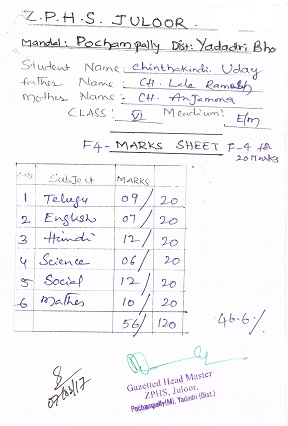 Z.P.H.S. JULOOR.
Mandal: Pochampally Dist: Yadadri Bho
Student Name: Chinthakindi. Uday
father Name: CH. Lala
Mother Name: CH. Anjamma
CLASS: VI Meadium: E/m
F4- MARKS SHEET F-4 for
20 Marks
S.NO SubJect MARKS
1 Telugu 09/ 20
2 English 07/ 20
3 Hindi 12/ 20
4 Science 06/ 20
5 Social 12/ 20
6 Mathes 10/ 20
56/ 120 46.6%
Gazetted Head Master
ZPHS, Juloor,
Pochampally(M), Yadadri (Dist.)